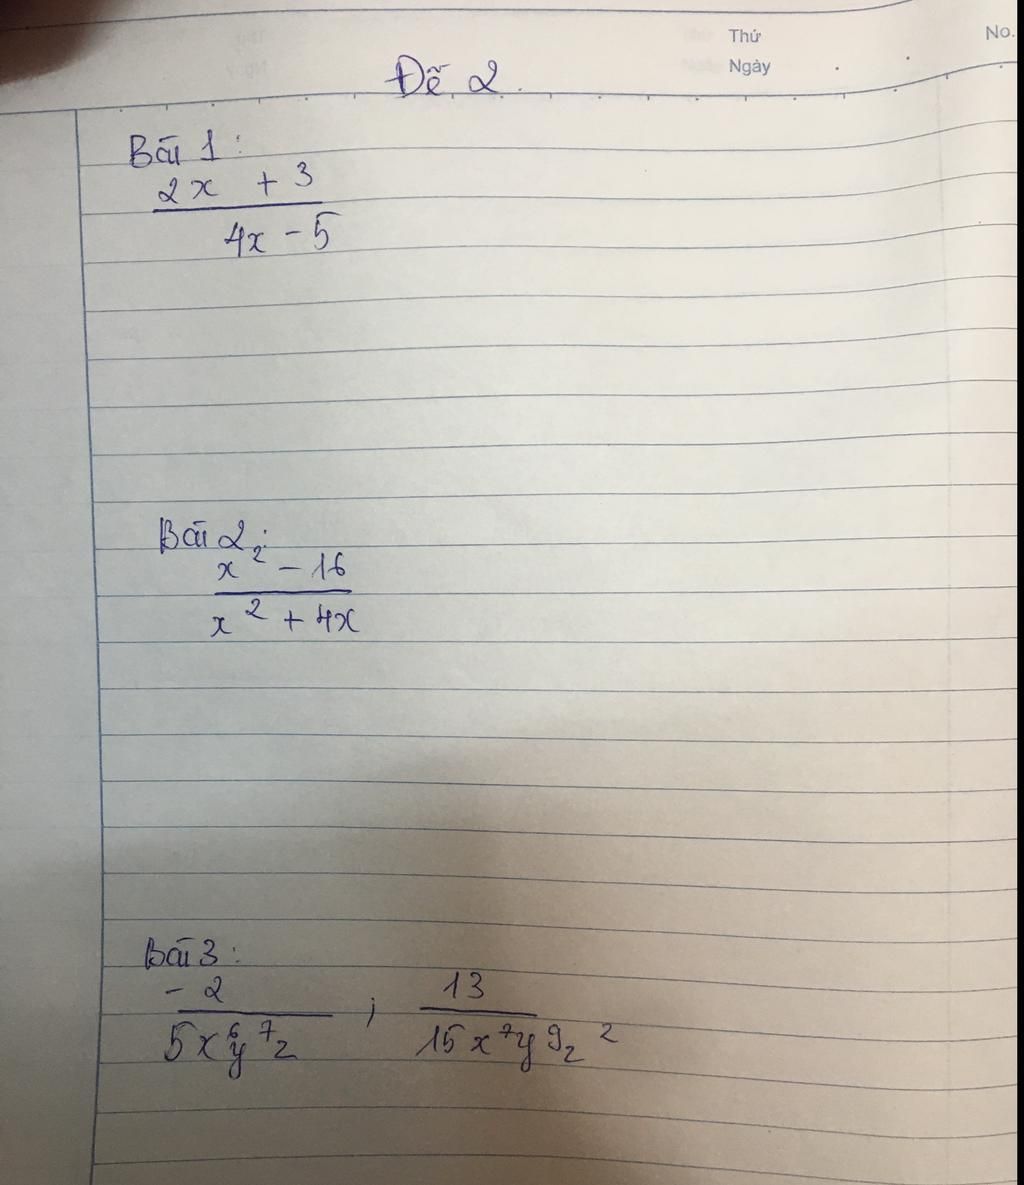 Thứ
No.
Ngày
Đề 2.
Bài 1:
2x + 3
4x - 5
Bài 2:
x² - 16
x² + 4x
Bài 3:
- 2 ; 13
5x⁶y⁷z 15x⁷y⁹z²